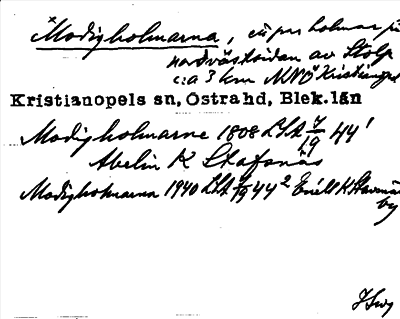 ×Modigholmarna, ett par holmar på
nordvästsidan av Stolp
c:a 3 km NNÖ Kristianopel
Kristianopels sn, Östra hd, Blek.län
Modigholmarne 1808 LSA 7/19 44¹
Abelin K Stafsnäs
Modigholmarna 1940 LSA 7/19 44² Enéll K
by